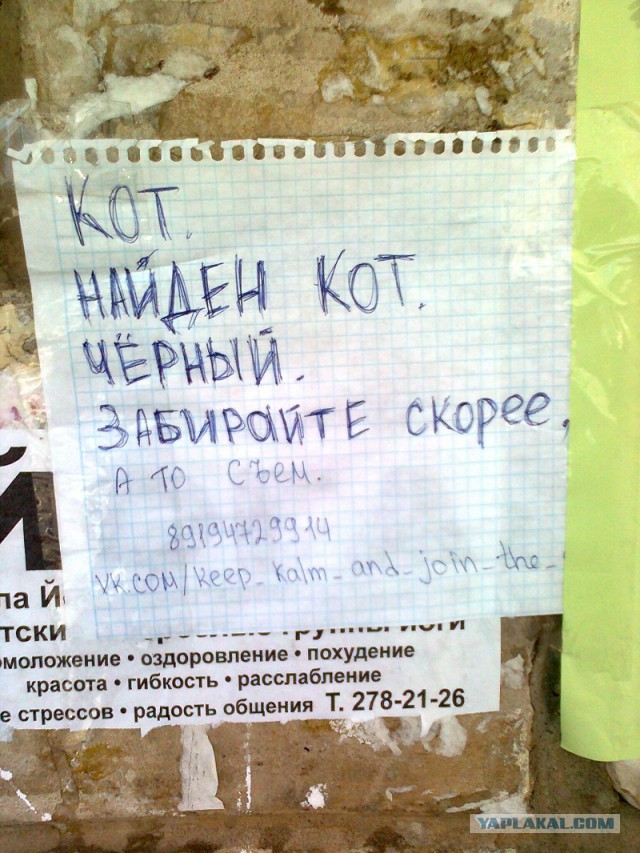 КОТ.
НАЙДЕН КОТ.
ЧЁРНЫЙ.
ЗАБИРАЙТЕ СКОРЕЕ,
А ТО СЪЕМ.
89194729914
VK.COM/keep_kalm_and_join_the_
й
ла Й
тски
группы йоги
омоложение • оздоровление • похудение
красота • гибкость • расслабление
е стрессов • радость общения Т. 278-21-26
YAPLAKAL.COM